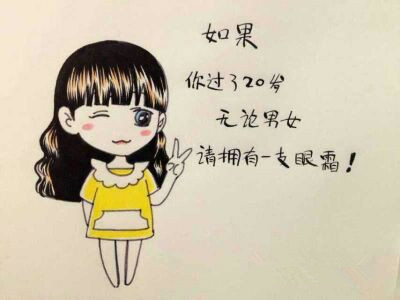 如果
你过了20岁
无论男女
请拥有一支眼霜！